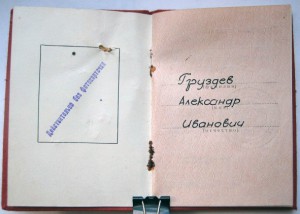 Действительно без фотокарточки
Груздев
(фамилия)
Александр
(имя)
Иванович
(отчество)